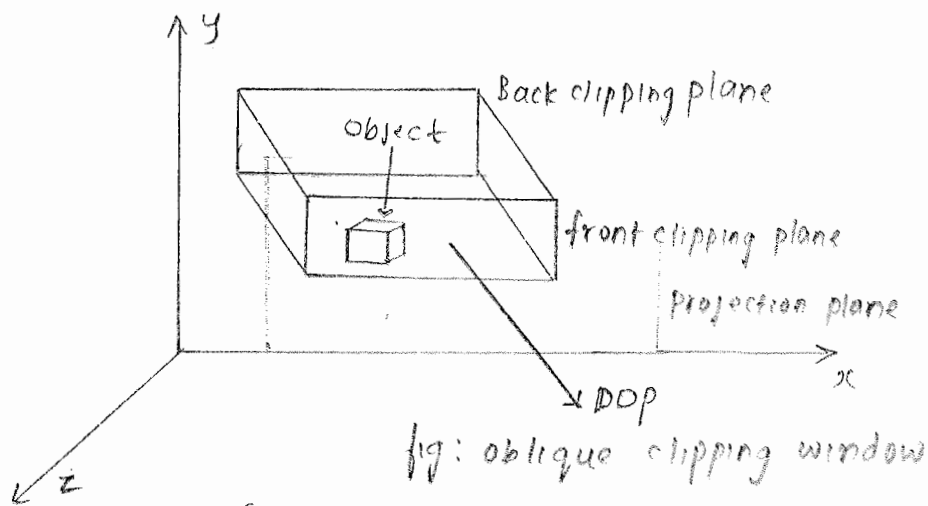 y
Back clipping plane
Object
front clipping plane
Projection plane
x
DOP
fig: oblique clipping window
z